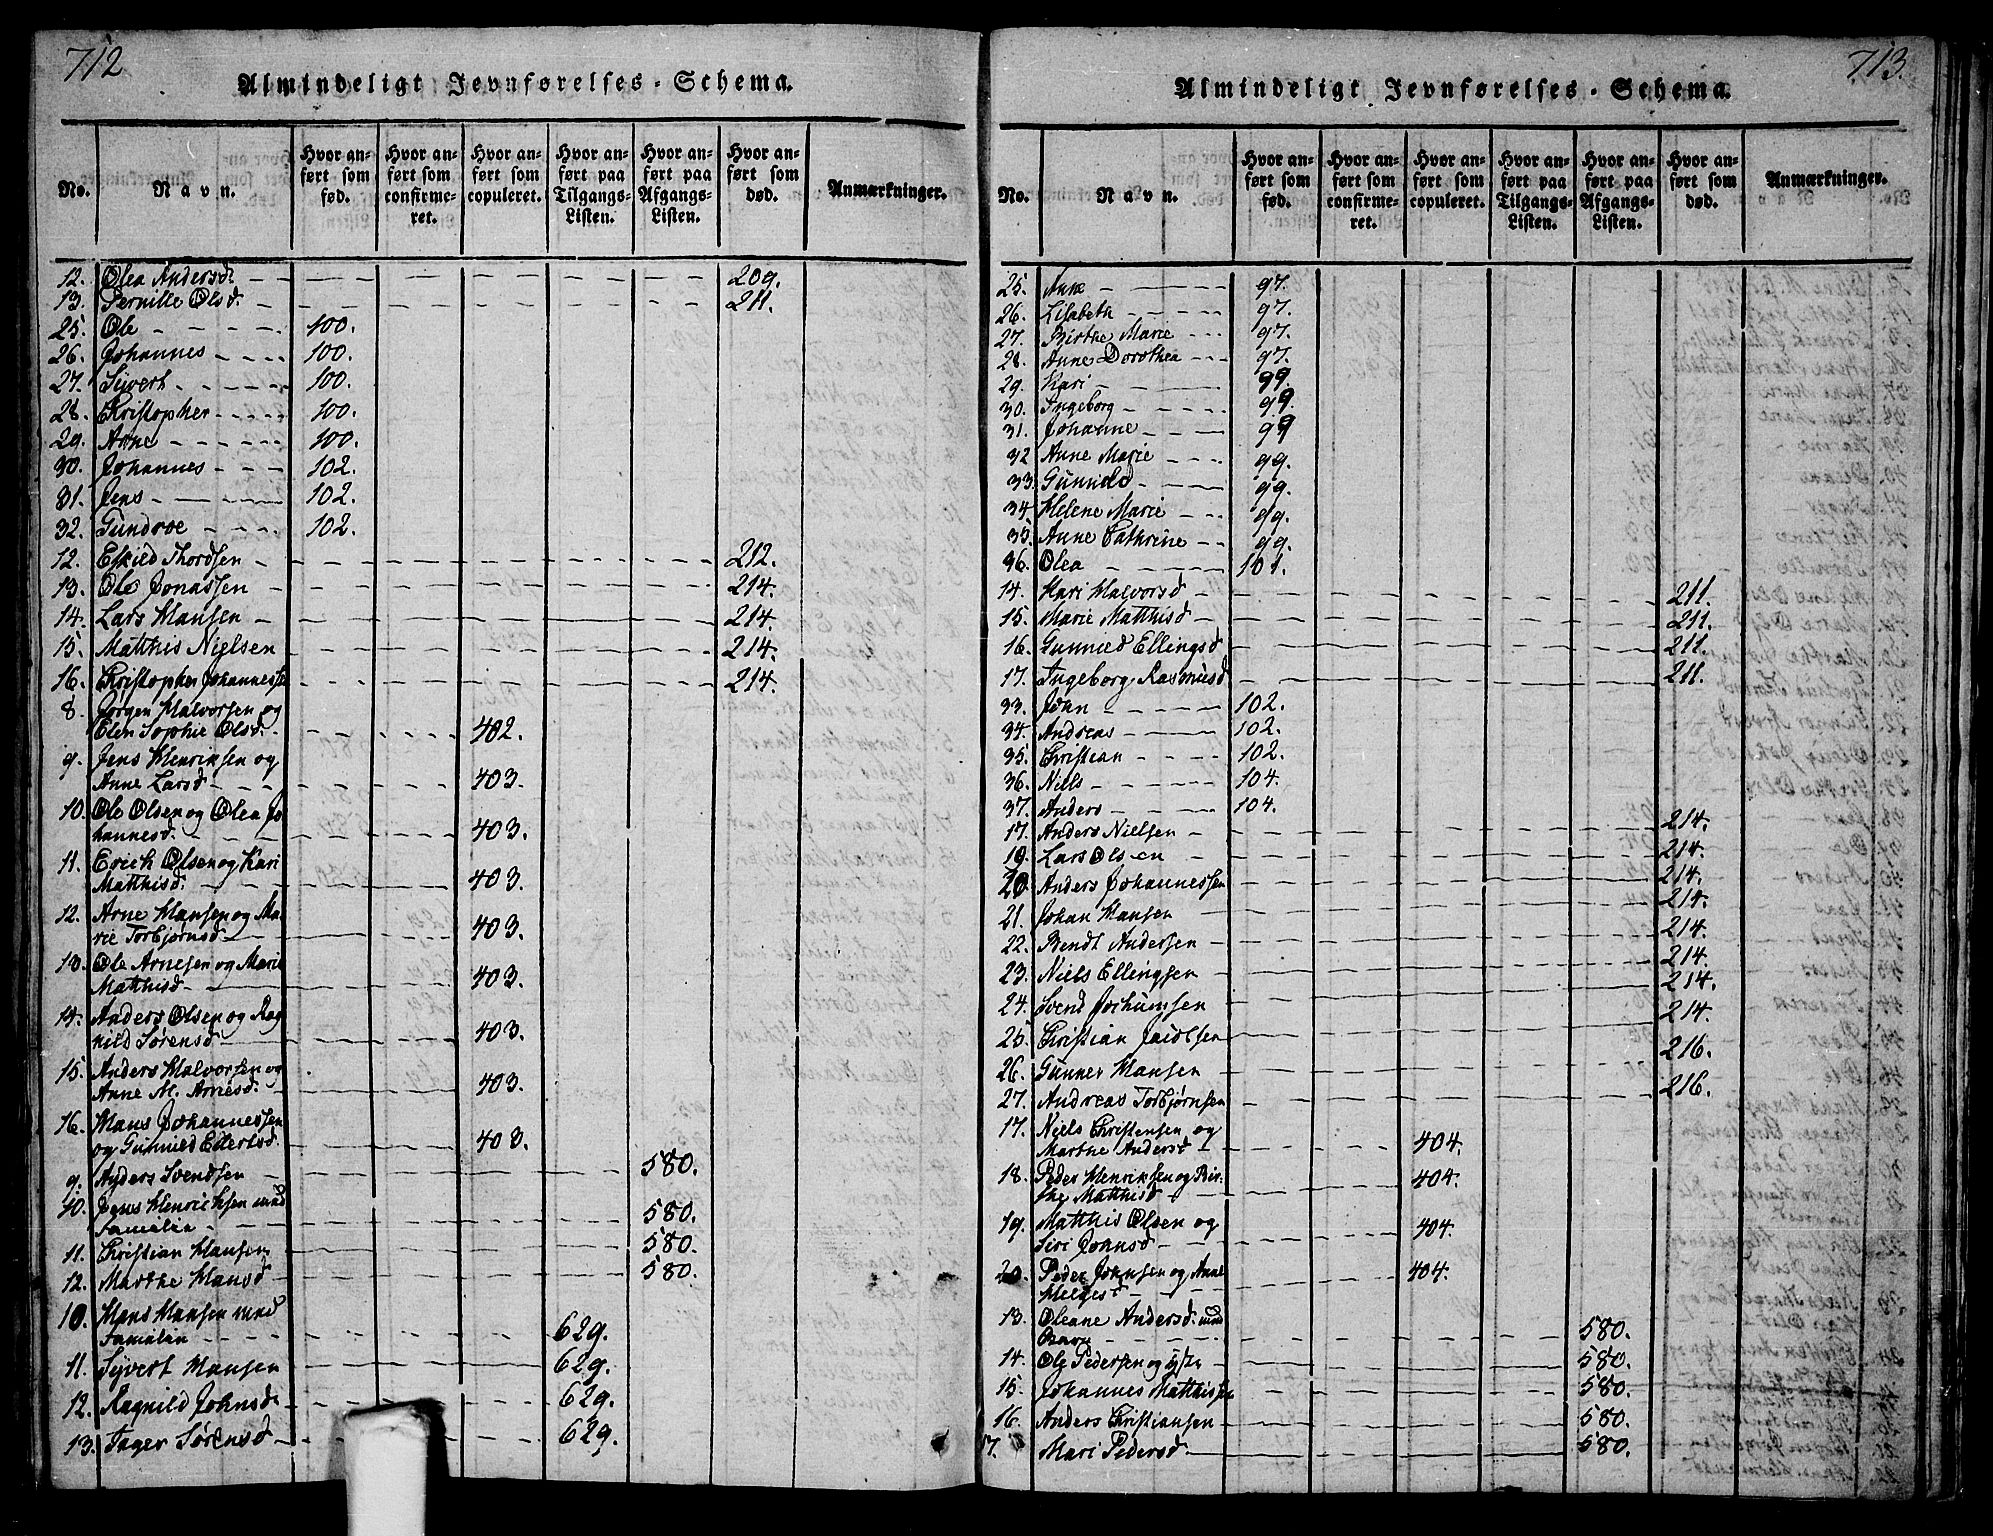 712
Almindeligt Jevnførelses-Schema.
No.
Navn.
Hvor anført som fød.
Hvor anført som confirmeret.
Hvor anført som copuleret.
Hvor anført paa Tilgangs-Listen.
Hvor anført paa Afgangs-Listen.
Hvor anført som død.
Anmærkninger.
12. Olea Andersd 209.
13. Pernille Olsd. 211.
25. Ole 100.
26. Johannes 100.
27. Syvert 100.
28. Christopher 100.
29. Arne 100.
30. Johannes 102.
31. Jens 102.
32. Gundroe 102.
12. Eskild Thordsen 212.
13. Ole Jonassen 214.
14. Lars Hansen 214.
15. Matthis Nielsen 214.
16. Christopher Johannesse 214.
8. Jørgen Halvorsen og
Elen Sophie Olsd. 402.
9. Jens Henriksen og
Anne Larsd 403.
10. Ole Olsen og Olea Jo
hannesd. 403.
11. Erich Olsen og Kari
Matthisd. 403.
12. Arne Hansen og Ma-
rie Torbjørnsd 403.
13. Ole Arnesen og Marie
Matthisd 403.
14. Anders Olsen og Rag
nild Sørensd 403.
15. Anders Halvorsen og
Anne M. Arnesd. 403.
16. Hans Johannessen
og Gunnild Ellertsd. 403.
9. Anders Svendsen 580.
10. Jens Henrichsen med
Familie 580.
11. Christian Hansen 580.
12. Marthe Hansd 580.
10. Hans Hansen med
Familie 629.
11. Syvert Hansen 629.
12. Ragnild Johnsd 629.
13. Tager Sørensd 629.
713.
Almindeligt Jevnførelses-Schema.
No.
Navn.
Hvor anført som fød.
Hvor anført som confirmeret.
Hvor anført som copuleret.
Hvor anført paa Tilgangs-Listen.
Hvor anført paa Afgangs-Listen.
Hvor anført som død.
Anmærkninger.
25. Anne 97.
26. Lisabeth 97.
27. Birthe Marie 97.
28. Anne Dorothea 97.
29. Kari 99.
30. Ingeborg 99.
31. Johanne 99
32 Anne Marie 99.
33. Gunnild 99.
34 Helene Marie 99.
35. Anne Cathrine 99.
36. Olea 101.
14. Kari Halvorsd 211.
15. Marie Matthisd 211.
16. Gunnild Ellingsd 211.
17. Ingeborg Rasmusd 211.
33. John 102.
34. Andreas 102.
35. Christian 102.
36. Niels 104.
37. Anders 104.
17. Anders Nielsen 214.
19. Lars Olsen 214.
20 Anders Johannessen 214.
21. Johan Hansen 214.
22. Bendt Andersen 214.
23. Niels Ellingsen 214.
24. Svend Jochumsen 214.
25. Christian 214.
26. Gunner Hansen 216.
27. Andreas Torbjørnsen 216.
17. Niels Christensen og
Marthe Andersd 404.
18. Peder Henriksen og Bir-
the Matthisd 404.
19. Matthis Olsen og
Siri Johnsd 404.
20. Peder Johnsen og Anne
Helgesd 404.
13. Oleane Andersd. med
Barn 580.
14. Ole Pedersen og 580.
15. Johannes Matthissen 580.
16. Anders Christiansen 580.
17. Mari Pedersd 580.